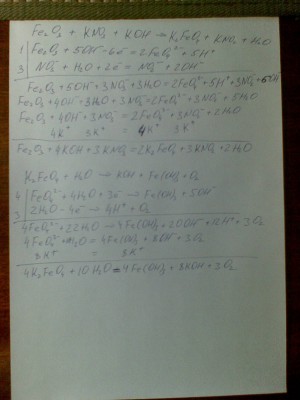 Fe₂O₃ + KNO₃ + KOH → K₂FeO₄ + KNO₂ + H₂O
1 | Fe₂O₃ + 5OH⁻ - 6e⁻ = 2FeO₄²⁻ + 5H⁺
3 | NO₃⁻ + H₂O + 2e⁻ = NO₂⁻ + 2OH⁻
Fe₂O₃ + 5OH⁻ + 3NO₃⁻ + 3H₂O = 2FeO₄²⁻ + 5H⁺ + 3NO₂⁻ + 6OH⁻
Fe₂O₃ + 4OH⁻ + 3H₂O + 3NO₃⁻ = 2FeO₄²⁻ + 3NO₂⁻ + 5H₂O
Fe₂O₃ + 4OH⁻ + 3NO₃⁻ = 2FeO₄²⁻ + 3NO₂⁻ + 2H₂O
4K⁺ 3K⁺ = 4K⁺ 3K⁺
Fe₂O₃ + 4KOH + 3KNO₃ = 2K₂FeO₄ + 3KNO₂ + 2H₂O
K₂FeO₄ + H₂O → KOH + Fe(OH)₃ + O₂
4 | FeO₄²⁻ + 4H₂O + 3e⁻ → Fe(OH)₃ + 5OH⁻
3 | 2H₂O - 4e⁻ → 4H⁺ + O₂
4FeO₄²⁻ + 22H₂O → 4Fe(OH)₃ + 20OH⁻ + 12H⁺ + 3O₂
4FeO₄²⁻ + 10H₂O = 4Fe(OH)₃ + 8OH⁻ + 3O₂
8K⁺ = 8K⁺
4K₂FeO₄ + 10H₂O = 4Fe(OH)₃ + 8KOH + 3O₂